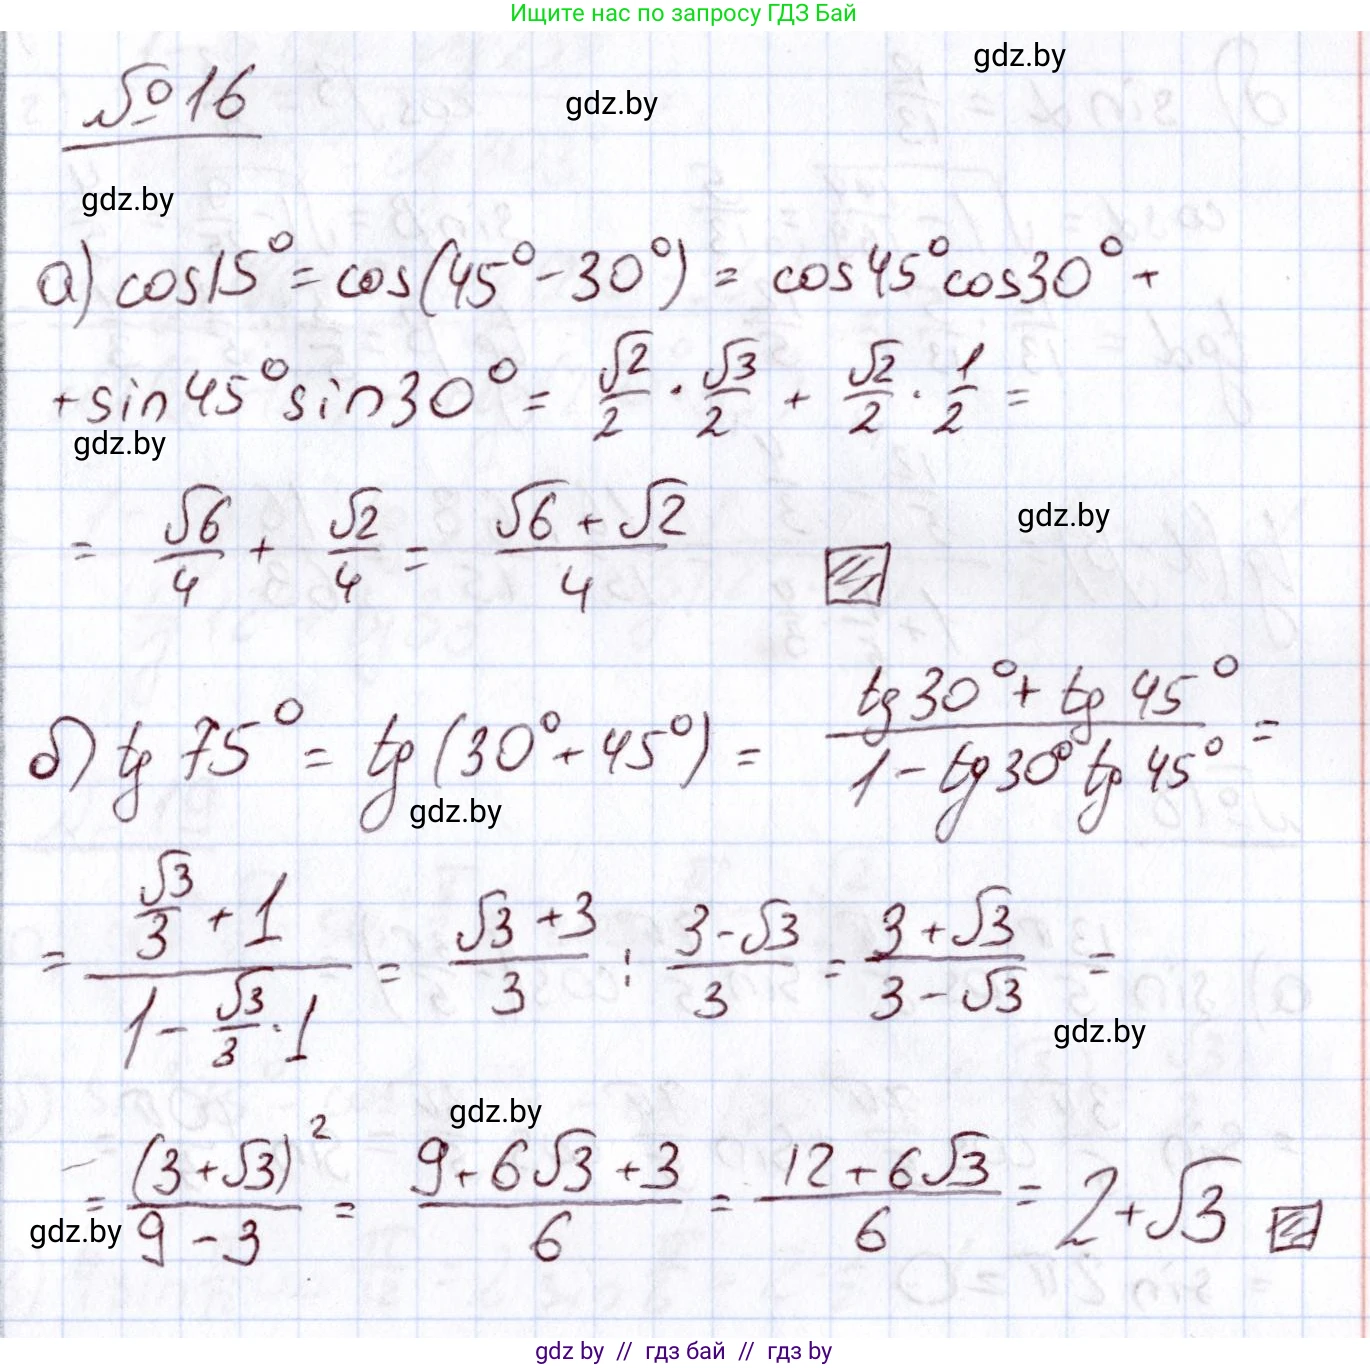 Ищите нас по запросу ГДЗ Бай
gdz.by
№16
gdz.by
gdz.by
а) cos15° = cos(45° - 30°) = cos45°cos30° +
+ sin45°sin30° = √2/2 · √3/2 + √2/2 · 1/2 =
gdz.by
= √6/4 + √2/4 = (√6 + √2)/4
gdz.by
б) tg 75° = tg(30° + 45°) = (tg30° + tg 45°)/(1 - tg30° tg45°) =
gdz.by
= (√3/3 + 1)/(1 - √3/3 · 1) = (√3 + 3)/3 : (3 - √3)/3 = (3 + √3)/(3 - √3) =
gdz.by
gdz.by
= (3 + √3)²/(9 - 3) = (9 + 6√3 + 3)/6 = (12 + 6√3)/6 = 2 + √3
gdz.by
gdz.by // гдз бай // гдз by